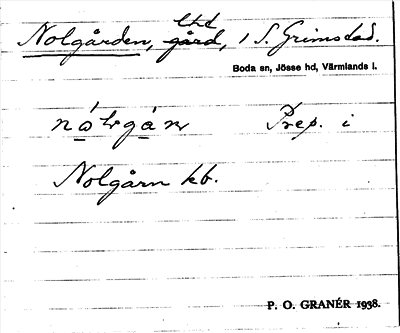 Nolgården, gård, 1 S. Grimstad.
Boda sn, Jösse hd, Värmlands l.
Prep. i
Nolgårn kb.
P. O. GRANÉR 1938.